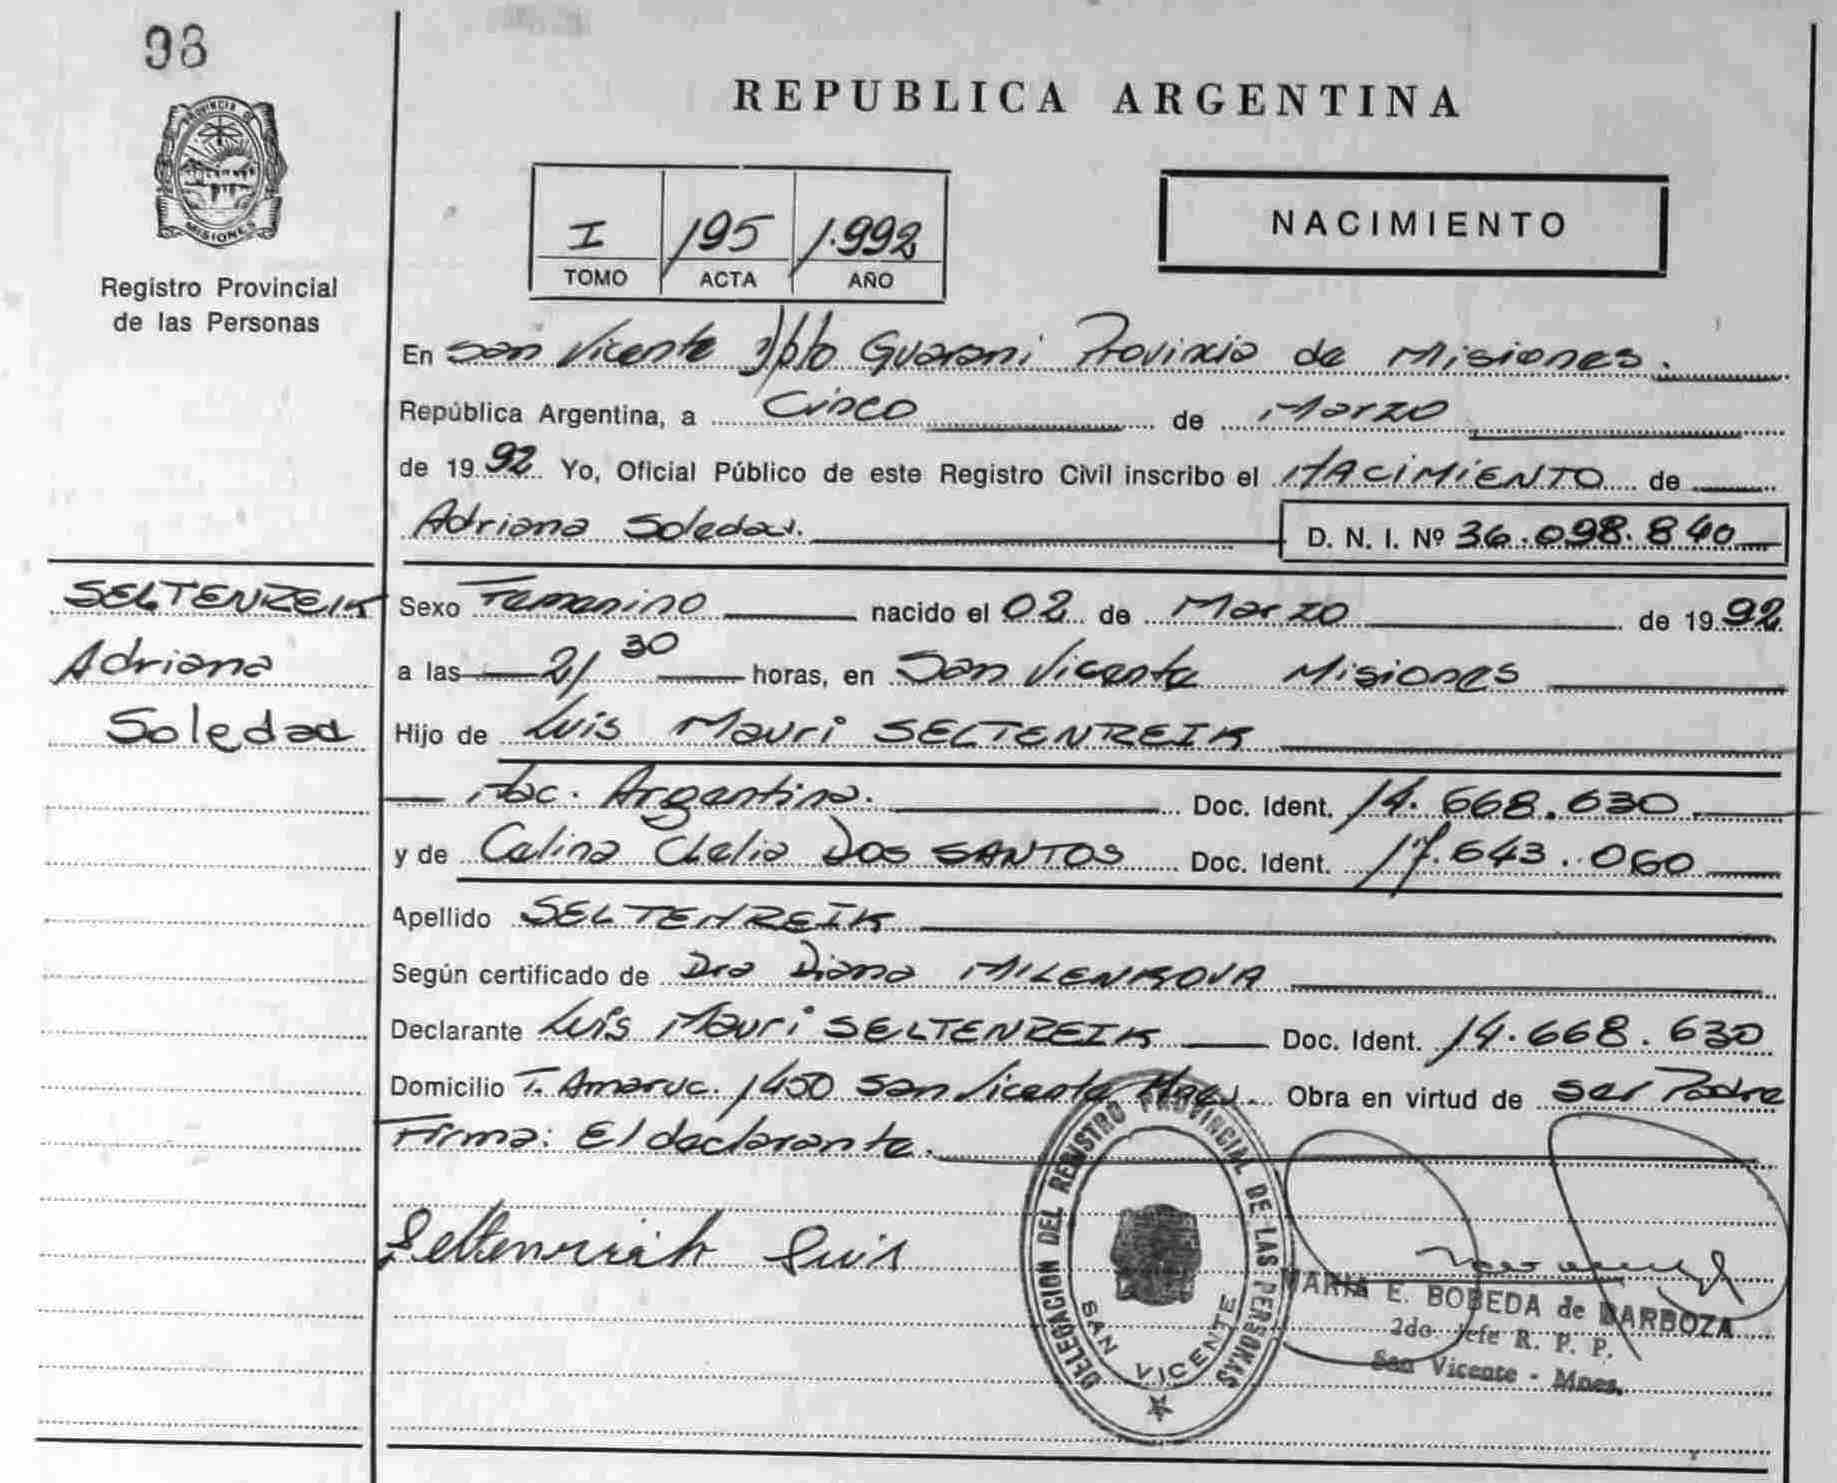 98
PROVINCIA DE
MISIONES
Registro Provincial
de las Personas
REPUBLICA ARGENTINA
I 195 1.992
TOMO ACTA AÑO
NACIMIENTO
En San Vicente Dpto Guarani Provincia de Misiones.
República Argentina, a Cinco de Marzo
de 1992 Yo, Oficial Público de este Registro Civil inscribo el NACIMIENTO de
Adriana Soledad. D. N. I. Nº 36.098.840
SELTENREIK
Adriana
Soledad
Sexo Femenino nacido el 02 de Marzo de 1992
a las 21 30 horas, en San Vicente Misiones
Hijo de Luis Mauri SELTENREIK
Nac. Argentina. Doc. Ident. 14.668.630
y de Celina Clelia DOS SANTOS Doc. Ident. 17.643.060
Apellido SELTENREIK
Según certificado de Dra Diana MILENKOVA
Declarante Luis Mauri SELTENREIK Doc. Ident. 14.668.630
Domicilio T. Amaruc. 1450 San Vicente Mnes. Obra en virtud de ser Padre
Firma: El declarante.
Seltenreich Luis
DELEGACION DEL REGISTRO PROVINCIAL DE LAS PERSONAS
SAN VICENTE
MARIA E. BOBEDA de BARBOZA
2do Jefe R. P. P.
San Vicente - Mnes.